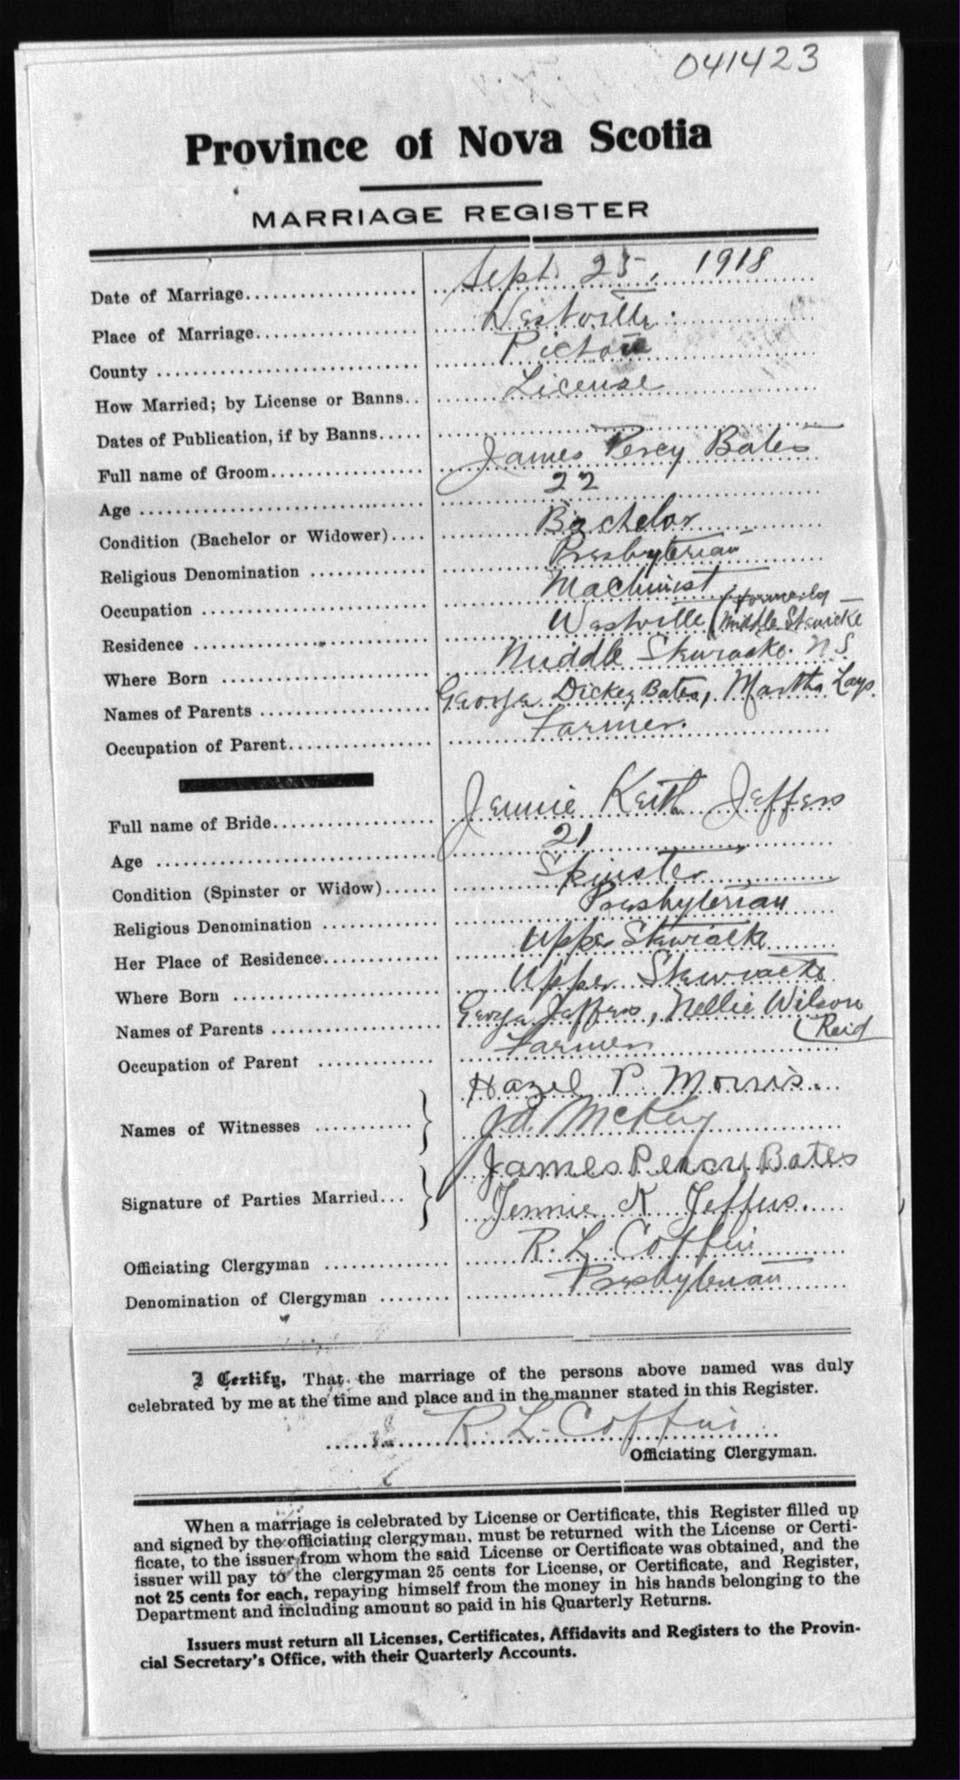 041423
Province of Nova Scotia
MARRIAGE REGISTER
Date of Marriage Sept. 25, 1918
Place of Marriage Westville
County Pictou
How Married; by License or Banns License
Dates of Publication, if by Banns
Full name of Groom James Percy Bates
Age 22
Condition (Bachelor or Widower) Bachelor
Religious Denomination Presbyterian
Occupation Machinist
Residence Westville (formerly Middle Stewicke
Where Born Middle Stewiacke. N.S.
Names of Parents George Dickey Bates, Martha
Occupation of Parent Farmer.
Full name of Bride Jennie Keith Jeffers
Age 21
Condition (Spinster or Widow) Spinster
Religious Denomination Presbyterian
Her Place of Residence Upper Stewiacke
Where Born Upper Stewiacke
Names of Parents George Jeffers, Nellie Wilson Reid
Occupation of Parent Farmer
Names of Witnesses Hazel P. Morris.
McKay
Signature of Parties Married James Percy Bates
Jennie K Jeffers.
Officiating Clergyman R. L. Coffin
Denomination of Clergyman Presbyterian
I Certify, That the marriage of the persons above named was duly
celebrated by me at the time and place and in the manner stated in this Register.
R. L. Coffin
Officiating Clergyman.
When a marriage is celebrated by License or Certificate, this Register filled up
and signed by the officiating clergyman, must be returned with the License or Certi-
ficate, to the issuer from whom the said License or Certificate was obtained, and the
issuer will pay to the clergyman 25 cents for License, or Certificate, and Register,
not 25 cents for each, repaying himself from the money in his hands belonging to the
Department and including amount so paid in his Quarterly Returns.
Issuers must return all Licenses, Certificates, Affidavits and Registers to the Provin-
cial Secretary's Office, with their Quarterly Accounts.